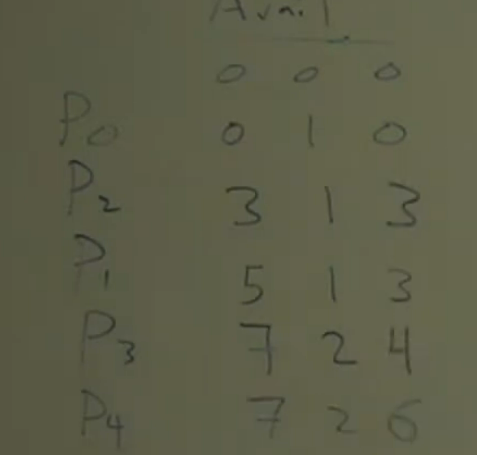 Avail
0 0 0
P0 0 1 0
P2 3 1 3
P1 5 1 3
P3 7 2 4
P4 7 2 6